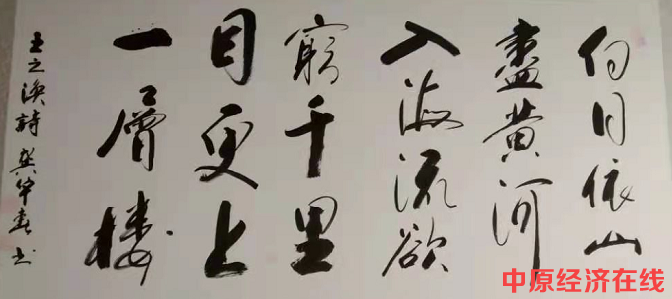 白日依山
盡黄河
入海流欲
窮千里
目更上
一層樓
王之渙詩 龚华春书
中原经济在线